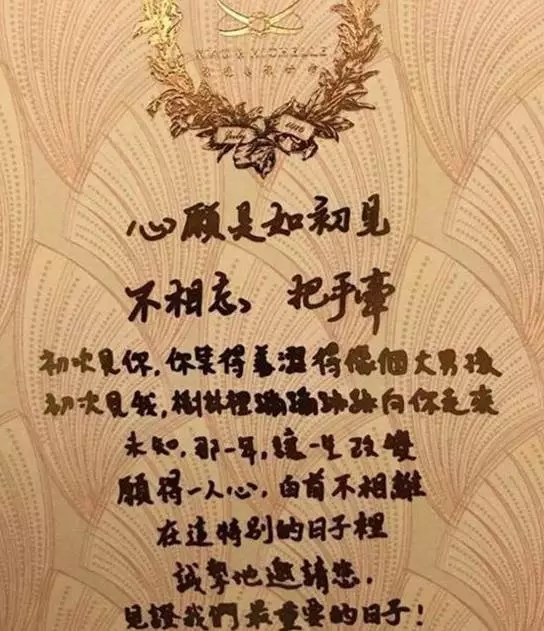 & MICHELLE
July
心願是如初見
不相忘、把手牽
初次見你，你笑得羞澀得像個大男孩
初次見我，樹林裡蹦蹦跳跳向你走來
未知，那一年，這一生改變
願得一人心，白首不相離
在這特別的日子裡
誠摯地邀請您，
見證我們最重要的日子！